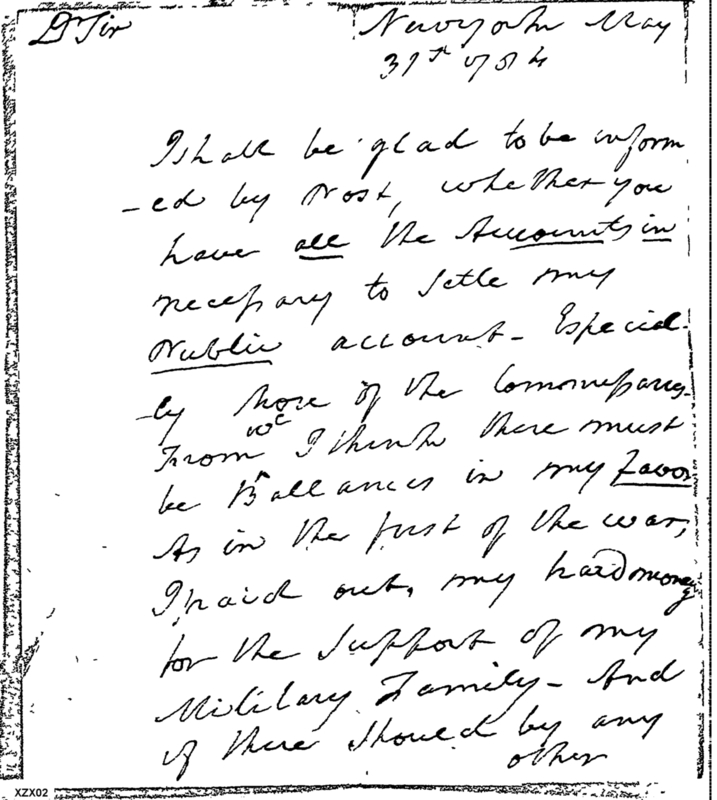 Dr Sir
Newyork May
31st 1784
I shall be glad to be inform
-ed by Post, whether you
have all the Accounts in
necessary to Setle my
Publie account - Especial-
-ly those of the
wc
From I think there must
be Ballances in my Favor
As in the first of the war,
I paid out, my hard money
for the Support of my
Military Family - And
if there should by any
other
XZX02